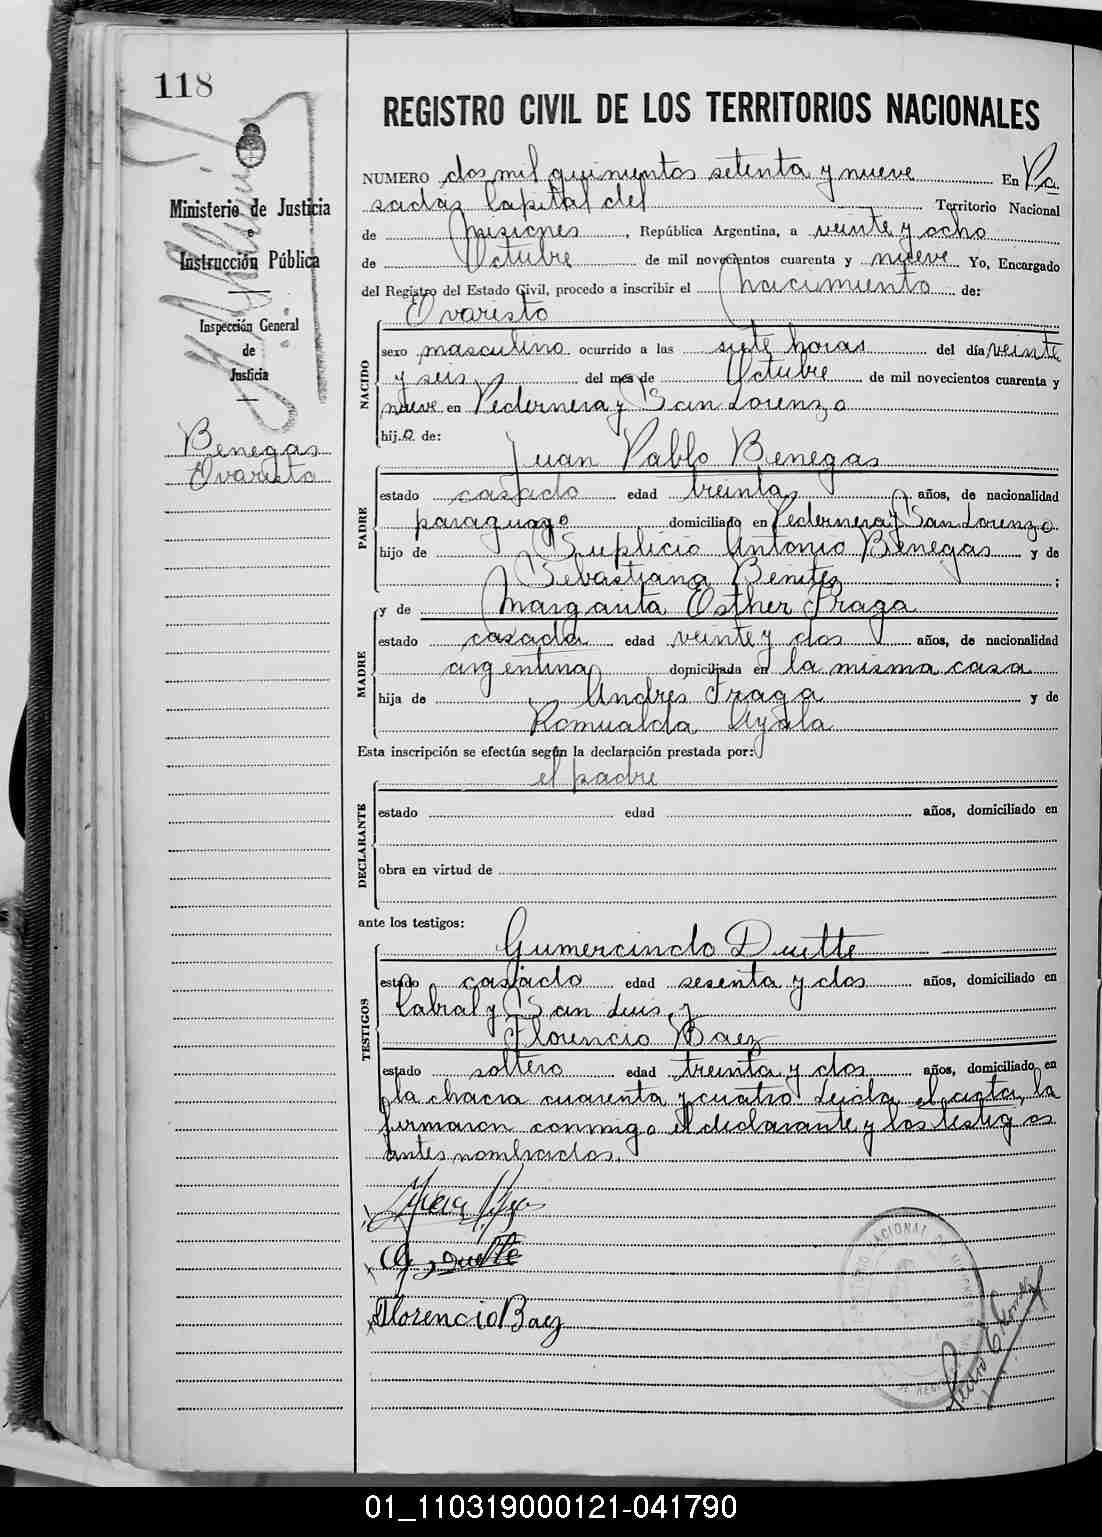 118
REGISTRO CIVIL DE LOS TERRITORIOS NACIONALES
Ministerio de Justicia
e
Instrucción Pública
Inspección General
de
Justicia
Benegas
Ovaristo
NUMERO dos mil quinientos setenta y nueve En Po
sadas Capital del Territorio Nacional
de Misiones, República Argentina, a veinte y ocho
de Octubre de mil novecientos cuarenta y nueve Yo, Encargado
del Registro del Estado Civil, procedo a inscribir el nacimiento de:
Ovaristo
NACIDO
sexo masculino ocurrido a las siete horas del día veinte
y seis del mes de Octubre de mil novecientos cuarenta y
nueve en Pedernera y San Lorenzo
hijo de:
Juan Pablo Benegas
PADRE
estado casado edad treinta años, de nacionalidad
paraguayo domiciliado en Pedernera y San Lorenzo
hijo de Suplicio Antonio Benegas y de
Sebastiana Benitez ;
y de Margarita Esther Fraga
MADRE
estado casada edad veinte y dos años, de nacionalidad
argentina domiciliada en la misma casa
hija de Andres Fraga y de
Romualda Ayala
Esta inscripción se efectúa según la declaración prestada por:
el padre
DECLARANTE
estado edad años, domiciliado en
obra en virtud de
ante los testigos:
Gumercindo Duette
TESTIGOS
estado casado edad sesenta y dos años, domiciliado en
Cabral y San Luis, y
Florencio Baez
estado soltero edad treinta y dos años, domiciliado en
la chacra cuarenta y cuatro Leida el acta, la
firmaron conmigo el declarante y los testigos
antes nombrados.
G. Duette
Florencio Baez
01_110319000121-041790